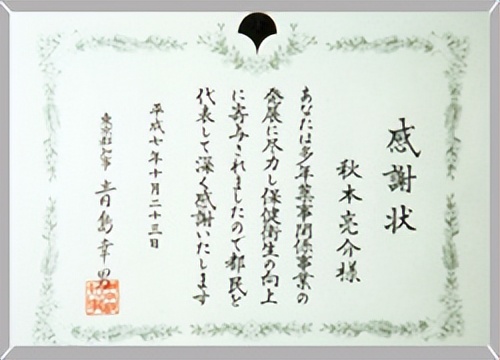 感謝状
秋本亮介様
あなたは多年薬事関係事業の
発展に尽力し保健衛生の向上
に寄与されましたので都民を
代表して深く感謝いたします
平成七年十月二十三日
東京都知事 青島幸男